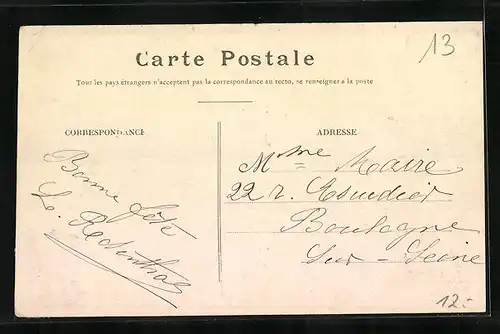 13
Carte Postale
Tous les pays étrangers n'acceptent pas la correspondance au recto, se renseigner à la poste
CORRESPONDANCE
ADRESSE
Bonne fête
Mme Maire
22 r. Escudier
Boulogne
Sur-Seine
12.-